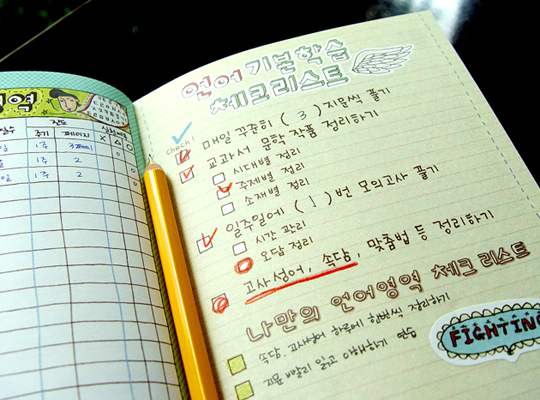 영역
진도
주기 페이지 X △ O
1주 3페이지
1주 2
1주 2
언어 기본학습
체크리스트
check!
매일 꾸준히 ( 3 ) 지문씩 풀기
교과서 문학 작품 정리하기
시대별 정리
주제별 정리
소재별 정리
일주일에 ( 1 ) 번 모의고사 풀기
시간 관리
오답 정리
고사성어, 속담, 맞춤법 등 정리하기
나만의 언어영역 체크 리스트
속담, 고사성어 하루에 한번씩 정리하기
지문 빨리 읽고 이해하기 연습
FIGHTING